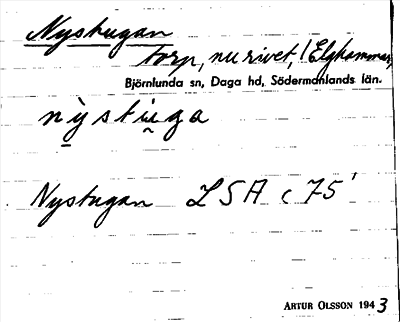 Nystugan
torp, nu rivet, / Elghammar,
Björnlunda sn, Daga hd, Södermanlands län.
nystuga
Nystugan LSA c 75'
ARTUR OLSSON 1943